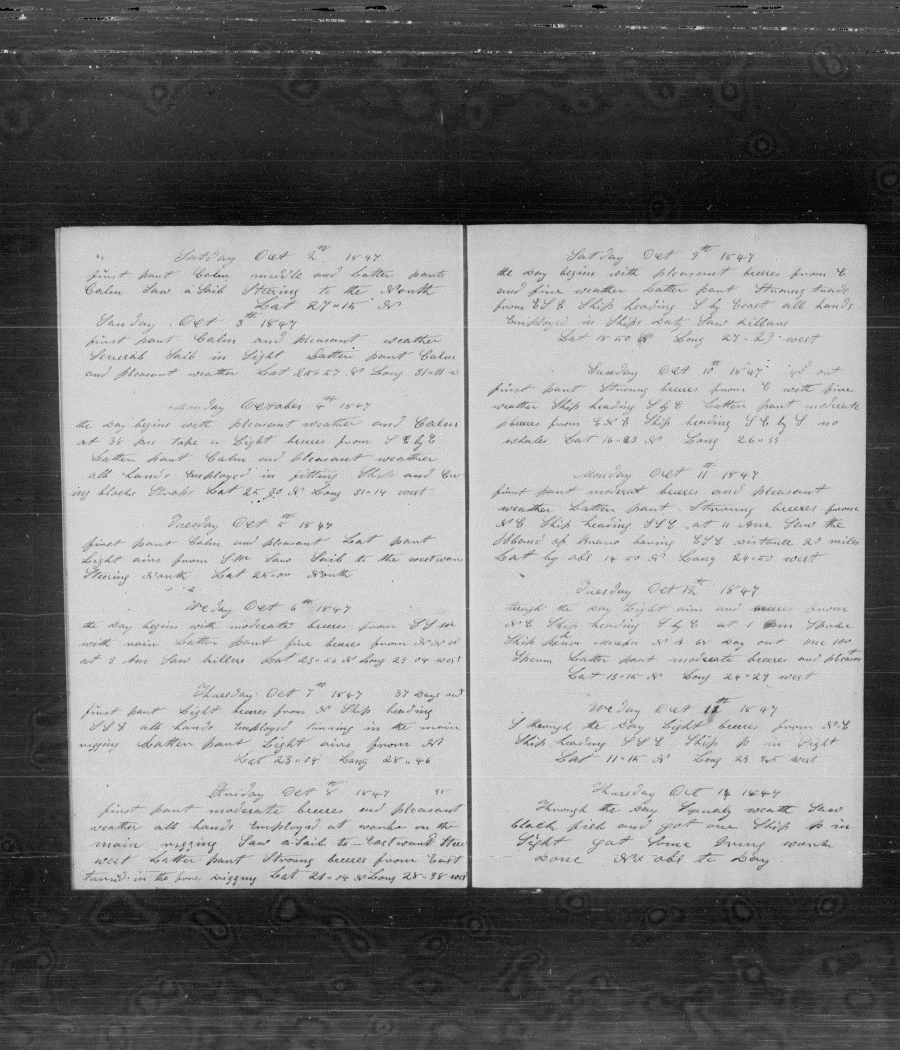 Satday Oct 2th 1847
first part Calm middle and Latter parts
Calm Saw a Sail Steering to the North
Lat 27=15 N
Sunday Oct 3th 1847
first part Calm and pleasant weather
Senerab Sails in Sight Latter part Calm
and pleasant weather Lat 25=57 N Long 31=01 w
Monday October 4th 1847
the day begins with pleasant weather and Calm
at pm take a Light breeze from S E by E
Latter part Calm and pleasant weather
all hands Employed in fitting and
ing blocks Straps Lat 25=30 N Long 31=14 west
Tuesday Oct 5 1847
first part Calm and pleasant Lat part
Light airs from SW Saw Sails to the westward
Steering North Lat 25=00 North
Weday Oct 6th 1847
the day begins with moderate breeses from SSW
with rain Latter part fine breeses from NNW
at 9 Am Saw killers Lat 23=50 N Long 29=04 west
Thursday Oct 7th 1847 37 Days out
first part Light breeses from N Ship heading
SSE all hands Employed turning in the main
rigging Latter part Light airs from N
Lat 23=04 Long 28=46
Friday Oct 8 1847 38
first part moderate breeses and pleasant
weather all hands Employed at worke on the
main rigging Saw a Sail to Eastward Steer
west Latter part Strong breeses from East
turnd in the fore Rigging Lat 21=04 N Long 28=38 west
Satday Oct 9th 1847
the day begins with pleasant breeses from E
and fine weather Latter part Stroung trades
from ESE Ship heading S by East all hands
Employed in Ships Duty Saw killers
Lat 18=50 N Long 27=27 west
Sunday Oct 10th 1847 out
first part Stroung breeses from E with fine
weather Ship heading S by E Latter part moderate
breeses from ENE Ship heading SE by S no
whales Lat 16=23 N Long 26=33
Monday Oct 11 1847
first part moderat breeses and pleasant
weather Latter part Stroung breeses from
NE Ship heading SSE at 11 Am Saw the
Island of baring ESE distance 20 miles
Lat by obs 14=50 N Long 24=50 west
Tuesday Oct 12th 1847
the day Light airs and from
NE Ship heading S by E at 1 Pm Spoke
Ship N 4 68 Day out one 100
Sperm Latter part moderate breeses and pleasan
Lat 13=15 N Long 24=29 west
Weday Oct 13th 1847
through the day Light breeses from NE
Ship heading SSE Ship in Sight
Lat 11=15 N Long 23 45 west
Thursday Oct 14 1847
Through the day Squaly weath Saw
black fish and got one Ship in
Sight got Some work
done No obs to Day